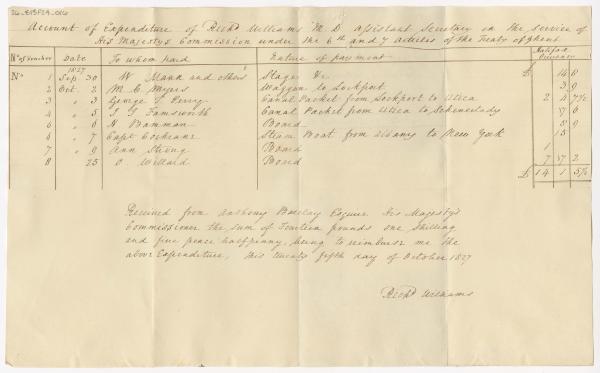 Account of Expenditure of Richd Williams M D assistant Secretary in the service of
His Majestys Commission under the 6th and 7 articles of the Treaty of Ghent
No of Voucher Date To whom paid Nature of payment Halifax Currency
1827
No 1 Sep 30 W Mann and others Stage &c £ 14
2 Oct 2 M C Myers Waggon to Lockport 3 9
3 " 3 George T Perry Canal Packet from Lockport to Utica 2 4 7½
4 " 5 Canal Packet from Utica to Schenectady 17
5 " 6 Board 5 9
6 " 7 Capt Cochrane Steam Boat from Albany to New York 15
7 " 9 Ann Strong Board 1
8 25 O Willard Board 7 17 2
£ 14 1 5½
Received from Anthony Barclay Esquire His Magestys
Commissioner the sum of Fourteen pounds one Shilling
and five pence halfpenny, being to reimburse me the
above Expenditure, this twenty fifth day of October 1827
Richd Williams